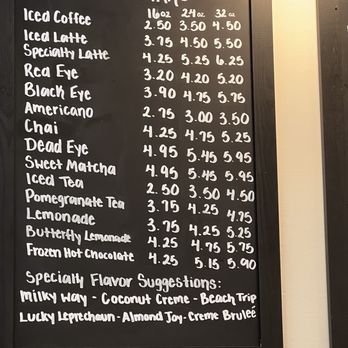 16oz 24oz 32oz
Iced Coffee 2.50 3.50 4.50
Iced Latte 3.75 4.50 5.50
Specialty Latte 4.25 5.25 6.25
Red Eye 3.20 4.20 5.20
Black Eye 3.90 4.75 5.75
Americano 2.75 3.00 3.50
Chai 4.25 4.75 5.25
Dead Eye 4.95 5.45 5.95
Sweet Matcha 4.95 5.45 5.95
Iced Tea 2.50 3.50 4.50
Pomegranate Tea 3.75 4.25 4.75
Lemonade 3.75 4.25 5.25
Butterfly Lemonade 4.25 4.75 5.75
Frozen Hot Chocolate 4.25 5.15 5.90
Specialty Flavor Suggestions:
Milky Way - Coconut Creme - Beach Trip
Lucky Leprechaun - Almond Joy - Creme Bruleé